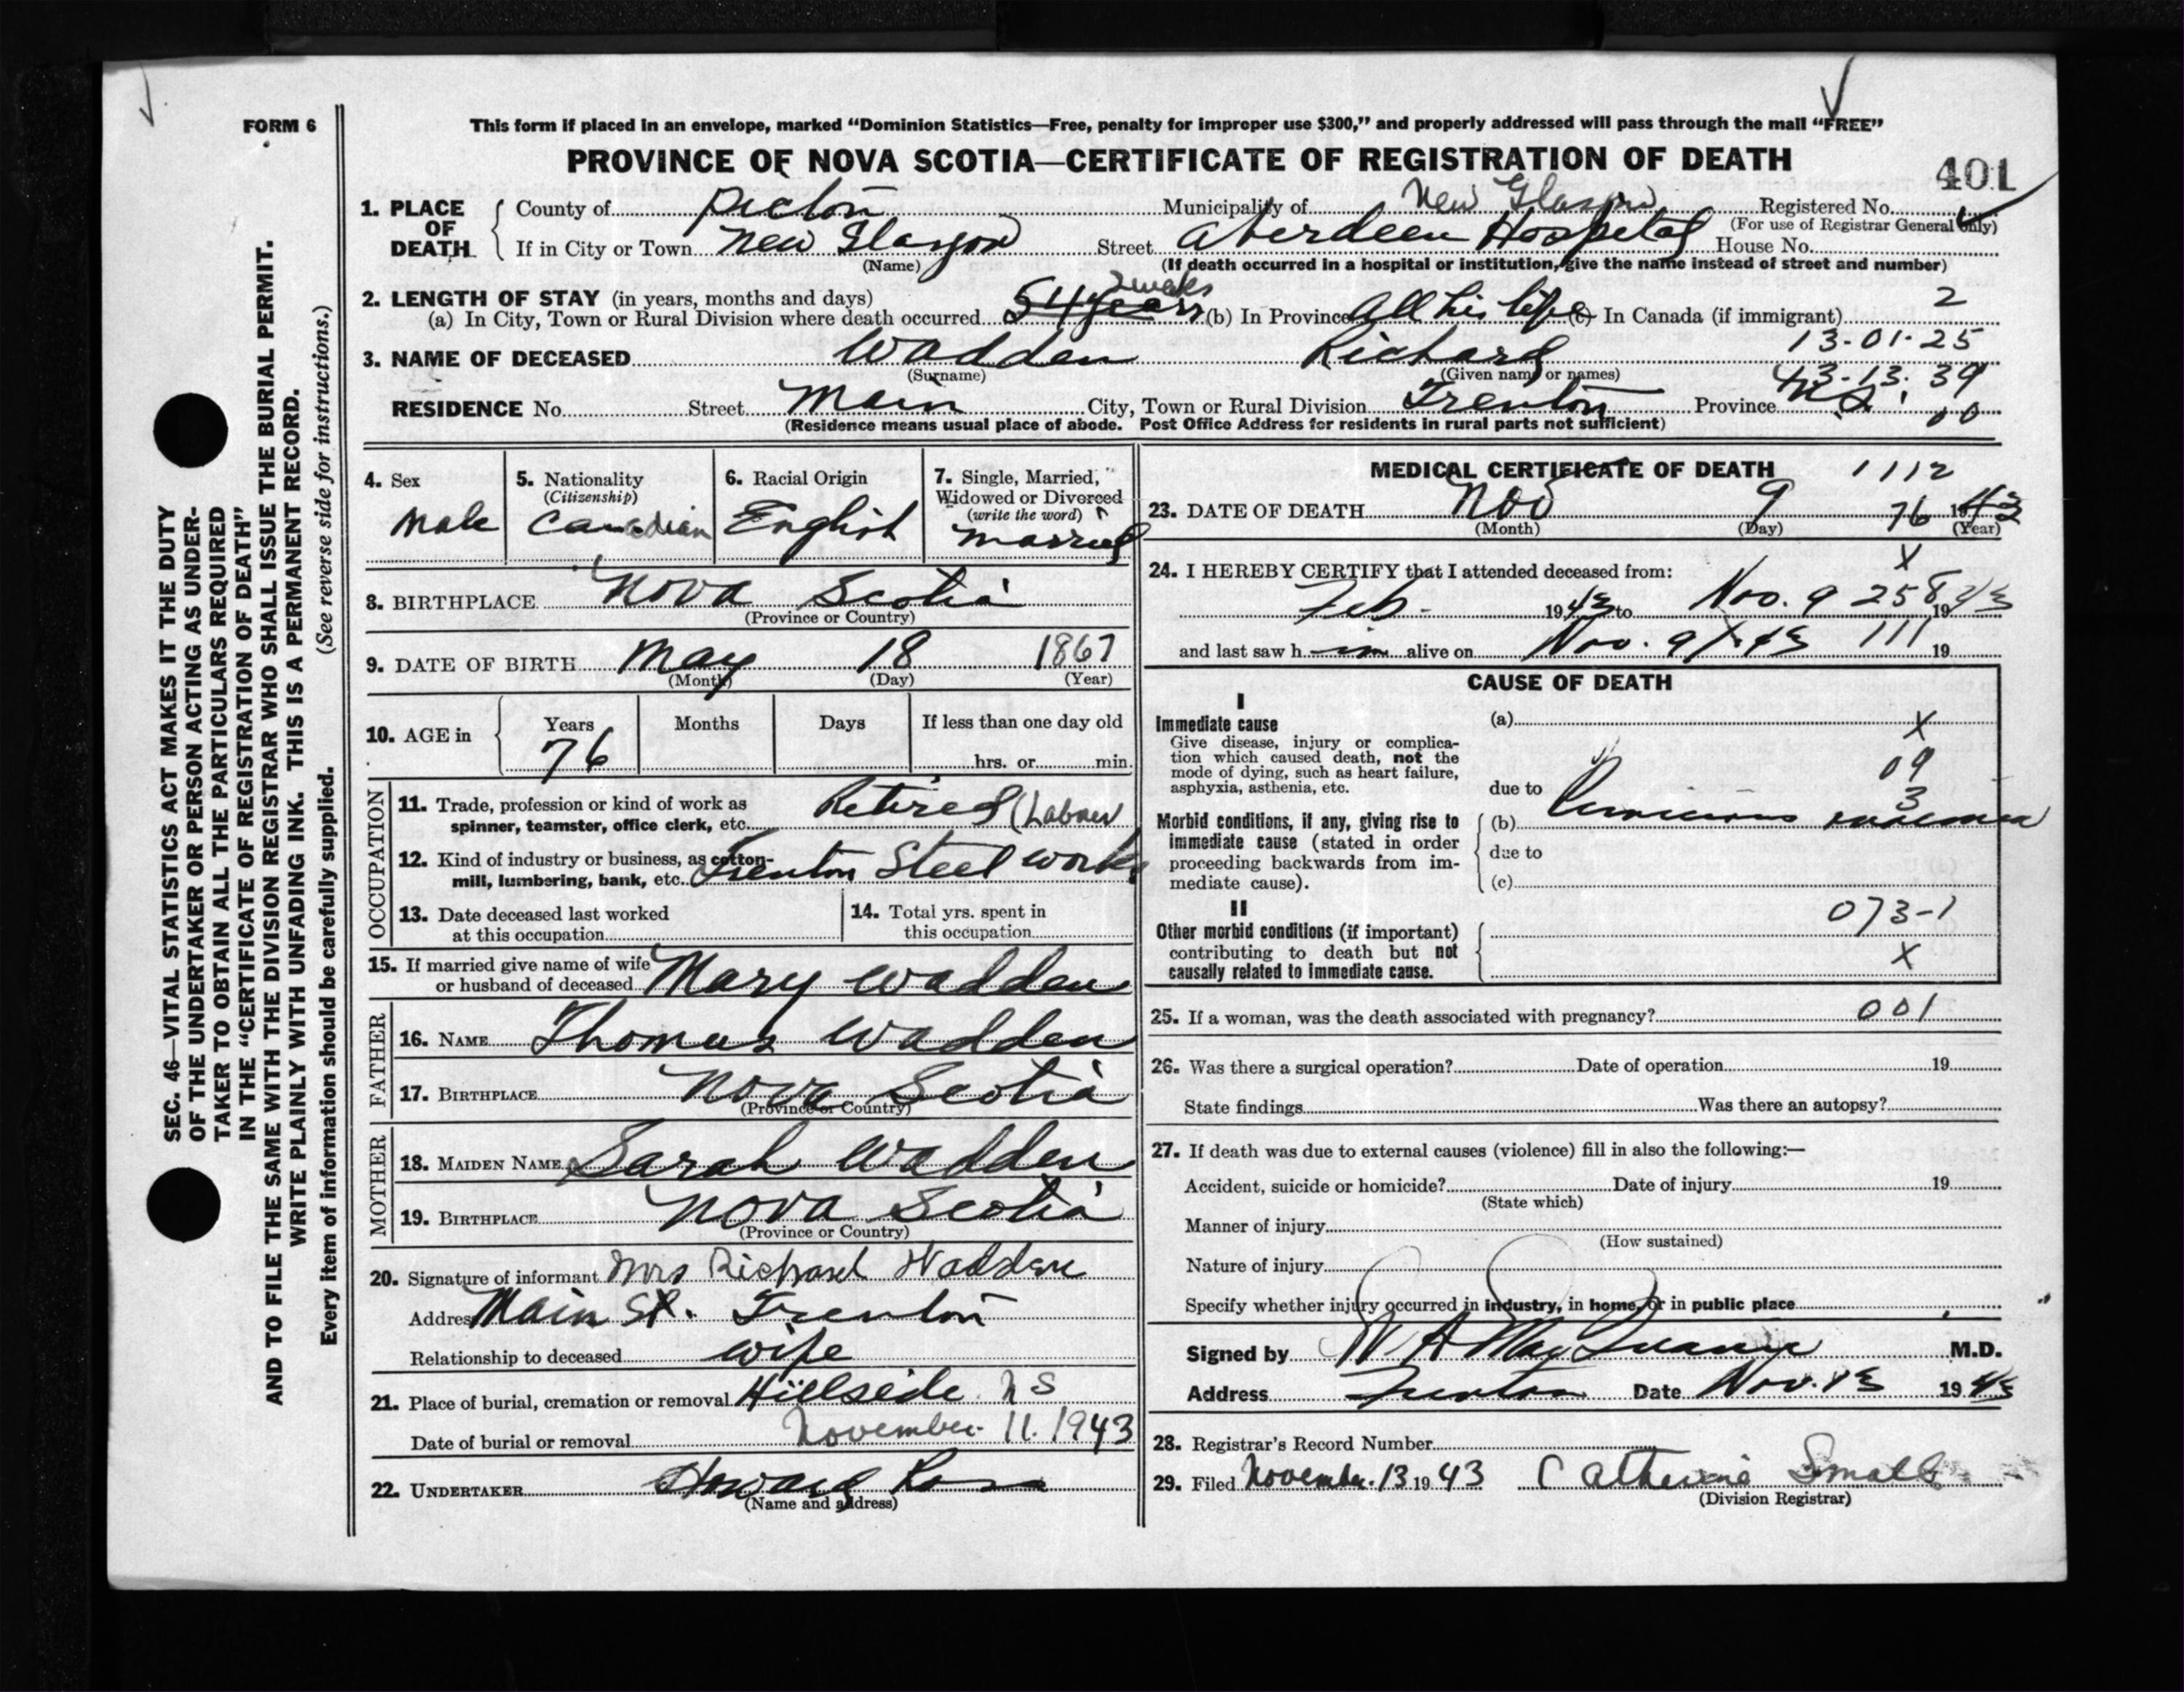 FORM 6
This form if placed in an envelope, marked "Dominion Statistics—Free, penalty for improper use $300," and properly addressed will pass through the mail "FREE"
PROVINCE OF NOVA SCOTIA—CERTIFICATE OF REGISTRATION OF DEATH
401
1. PLACE OF DEATH County of Pictou Municipality of New Glasgow Registered No.
(For use of Registrar General only)
If in City or Town New Glasgow Street Aberdeen Hospital House No.
(Name) (If death occurred in a hospital or institution, give the name instead of street and number)
2. LENGTH OF STAY (in years, months and days) 2 weeks 2
(a) In City, Town or Rural Division where death occurred 54 years (b) In Province All his life (c) In Canada (if immigrant)
13-01-25
3. NAME OF DECEASED Wadden Richard
(Surname) (Given name or names)
43-13-39
RESIDENCE No. Street Main City, Town or Rural Division Trenton Province N.S. 00
(Residence means usual place of abode. Post Office Address for residents in rural parts not sufficient)
4. Sex Male
5. Nationality (Citizenship) Canadian
6. Racial Origin English
7. Single, Married, Widowed or Divorced (write the word) Married
8. BIRTHPLACE Nova Scotia
(Province or Country)
9. DATE OF BIRTH May 18 1867
(Month) (Day) (Year)
10. AGE in Years Months Days If less than one day old
76 hrs. or min.
OCCUPATION
11. Trade, profession or kind of work as spinner, teamster, office clerk, etc. Retired (Laborer
12. Kind of industry or business, as cotton-mill, lumbering, bank, etc. Trenton Steel Works
13. Date deceased last worked at this occupation
14. Total yrs. spent in this occupation
15. If married give name of wife or husband of deceased Mary Wadden
FATHER
16. NAME Thomas Wadden
17. BIRTHPLACE Nova Scotia
(Province or Country)
MOTHER
18. MAIDEN NAME Sarah Wadden
19. BIRTHPLACE Nova Scotia
(Province or Country)
20. Signature of informant Mrs Richard Wadden
Address Main St. Trenton
Relationship to deceased wife
21. Place of burial, cremation or removal Hillside N S
Date of burial or removal November 11. 1943
22. UNDERTAKER Howard Ross
(Name and address)
MEDICAL CERTIFICATE OF DEATH 1112
23. DATE OF DEATH Nov 9 76 1943
(Month) (Day) (Year)
X
24. I HEREBY CERTIFY that I attended deceased from:
Feb. 1943 to Nov. 9 258 1943
and last saw him alive on Nov. 9 X 43 111 19
CAUSE OF DEATH
I
Immediate cause (a) X
Give disease, injury or complication which caused death, not the mode of dying, such as heart failure, asphyxia, asthenia, etc.
09
due to 3
Morbid conditions, if any, giving rise to immediate cause (stated in order proceeding backwards from immediate cause).
(b) Pernicious anaemia
due to
(c)
II
Other morbid conditions (if important) contributing to death but not causally related to immediate cause.
073-1
X
25. If a woman, was the death associated with pregnancy? 001
26. Was there a surgical operation? Date of operation 19
State findings Was there an autopsy?
27. If death was due to external causes (violence) fill in also the following:—
Accident, suicide or homicide? Date of injury 19
(State which)
Manner of injury
(How sustained)
Nature of injury
Specify whether injury occurred in industry, in home, or in public place
Signed by W A Mac M.D.
Address Trenton Date Nov. 13 1943
28. Registrar's Record Number
29. Filed November 13 1943 Catherine Small
(Division Registrar)
SEC. 46—VITAL STATISTICS ACT MAKES IT THE DUTY
OF THE UNDERTAKER OR PERSON ACTING AS UNDER-
TAKER TO OBTAIN ALL THE PARTICULARS REQUIRED
IN THE "CERTIFICATE OF REGISTRATION OF DEATH"
AND TO FILE THE SAME WITH THE DIVISION REGISTRAR WHO SHALL ISSUE THE BURIAL PERMIT.
WRITE PLAINLY WITH UNFADING INK. THIS IS A PERMANENT RECORD.
Every item of information should be carefully supplied. (See reverse side for instructions.)